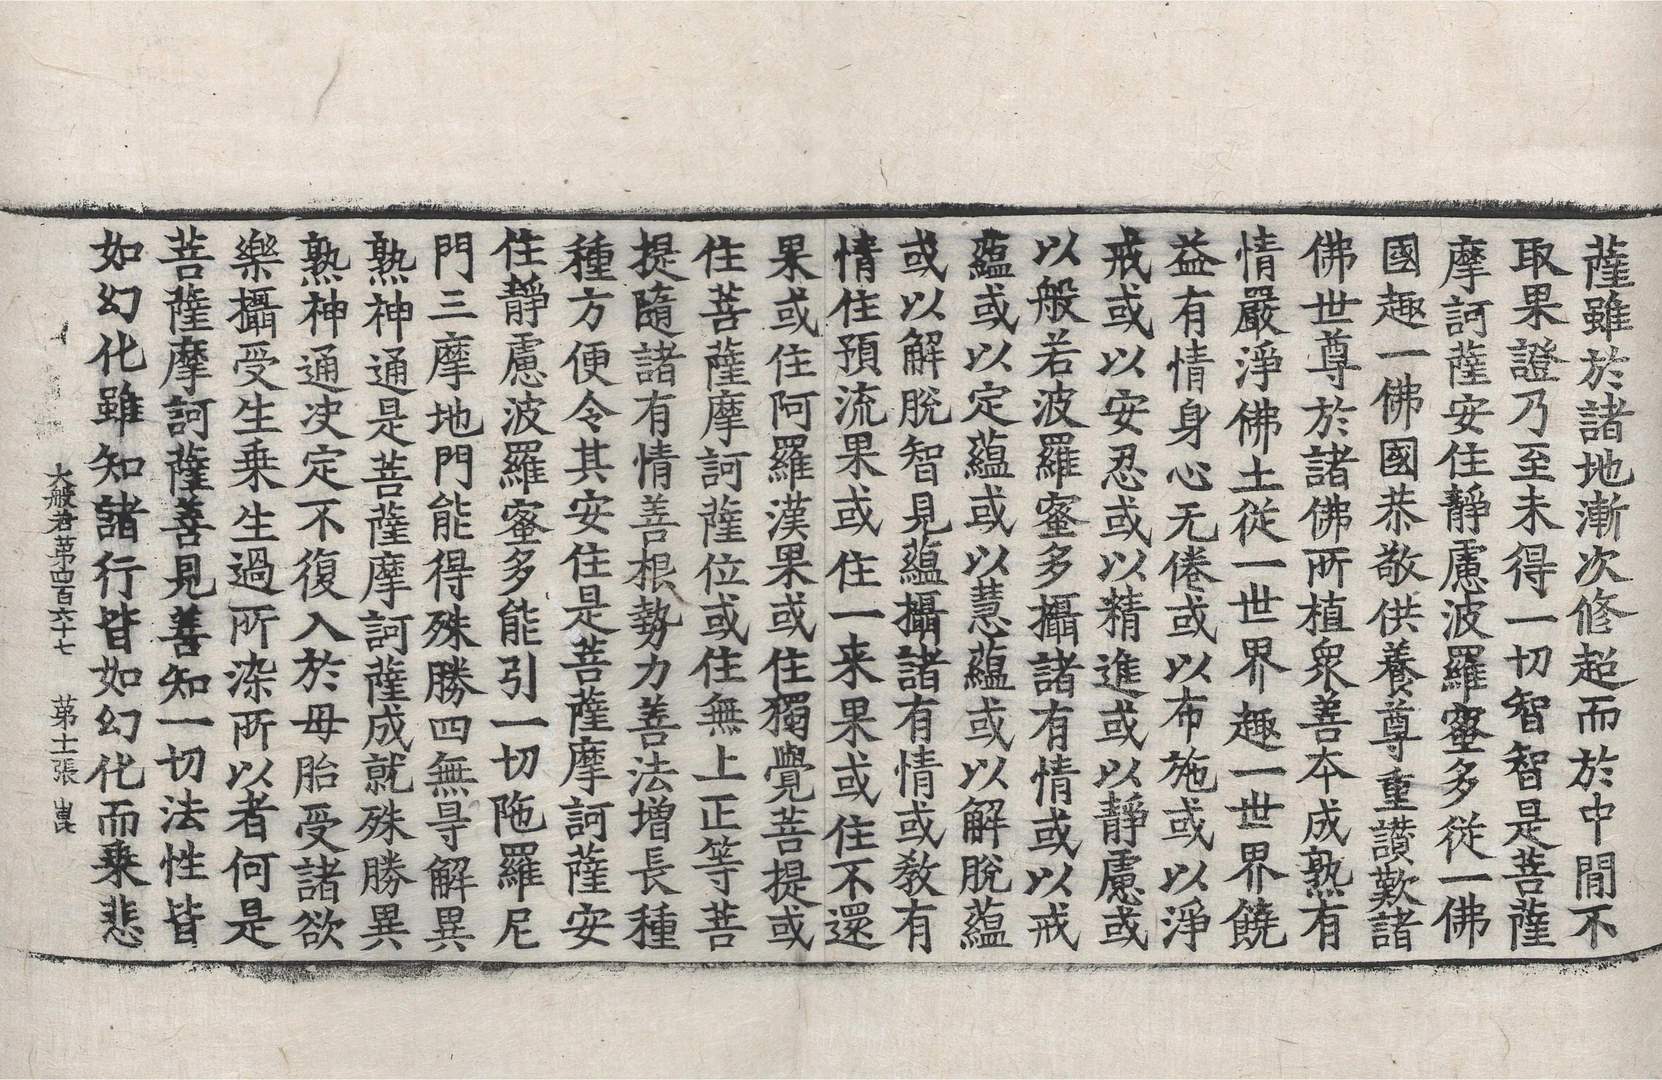 薩雖於諸地漸次修超而於中閒不
取果證乃至未得一切智智是菩薩
摩訶薩安住靜慮波羅蜜多從一佛
國趣一佛國恭敬供養尊重讚歎諸
佛世尊於諸佛所植衆善本成熟有
情嚴淨佛土從一世界趣一世界饒
益有情身心无倦或以布施或以淨
戒或以安忍或以精進或以靜慮或
以般若波羅蜜多攝諸有情或以戒
蘊或以定蘊或以慧蘊或以解脫蘊
或以解脫智見蘊攝諸有情或教有
情住預流果或住一来果或住不還
果或住阿羅漢果或住獨覺菩提或
住菩薩摩訶薩位或住無上正等菩
提隨諸有情善根勢力善法增長種
種方便令其安住是菩薩摩訶薩安
住靜慮波羅蜜多能引一切陁羅尼
門三摩地門能得殊勝四無㝵解異
熟神通是菩薩摩訶薩成就殊勝異
熟神通决定不復入於母胎受諸欲
樂攝受生乘生過所染所以者何是
菩薩摩訶薩善見善知一切法性皆
如幻化雖知諸行皆如幻化而乘悲
大般若第四百六十七 第十一張 崑